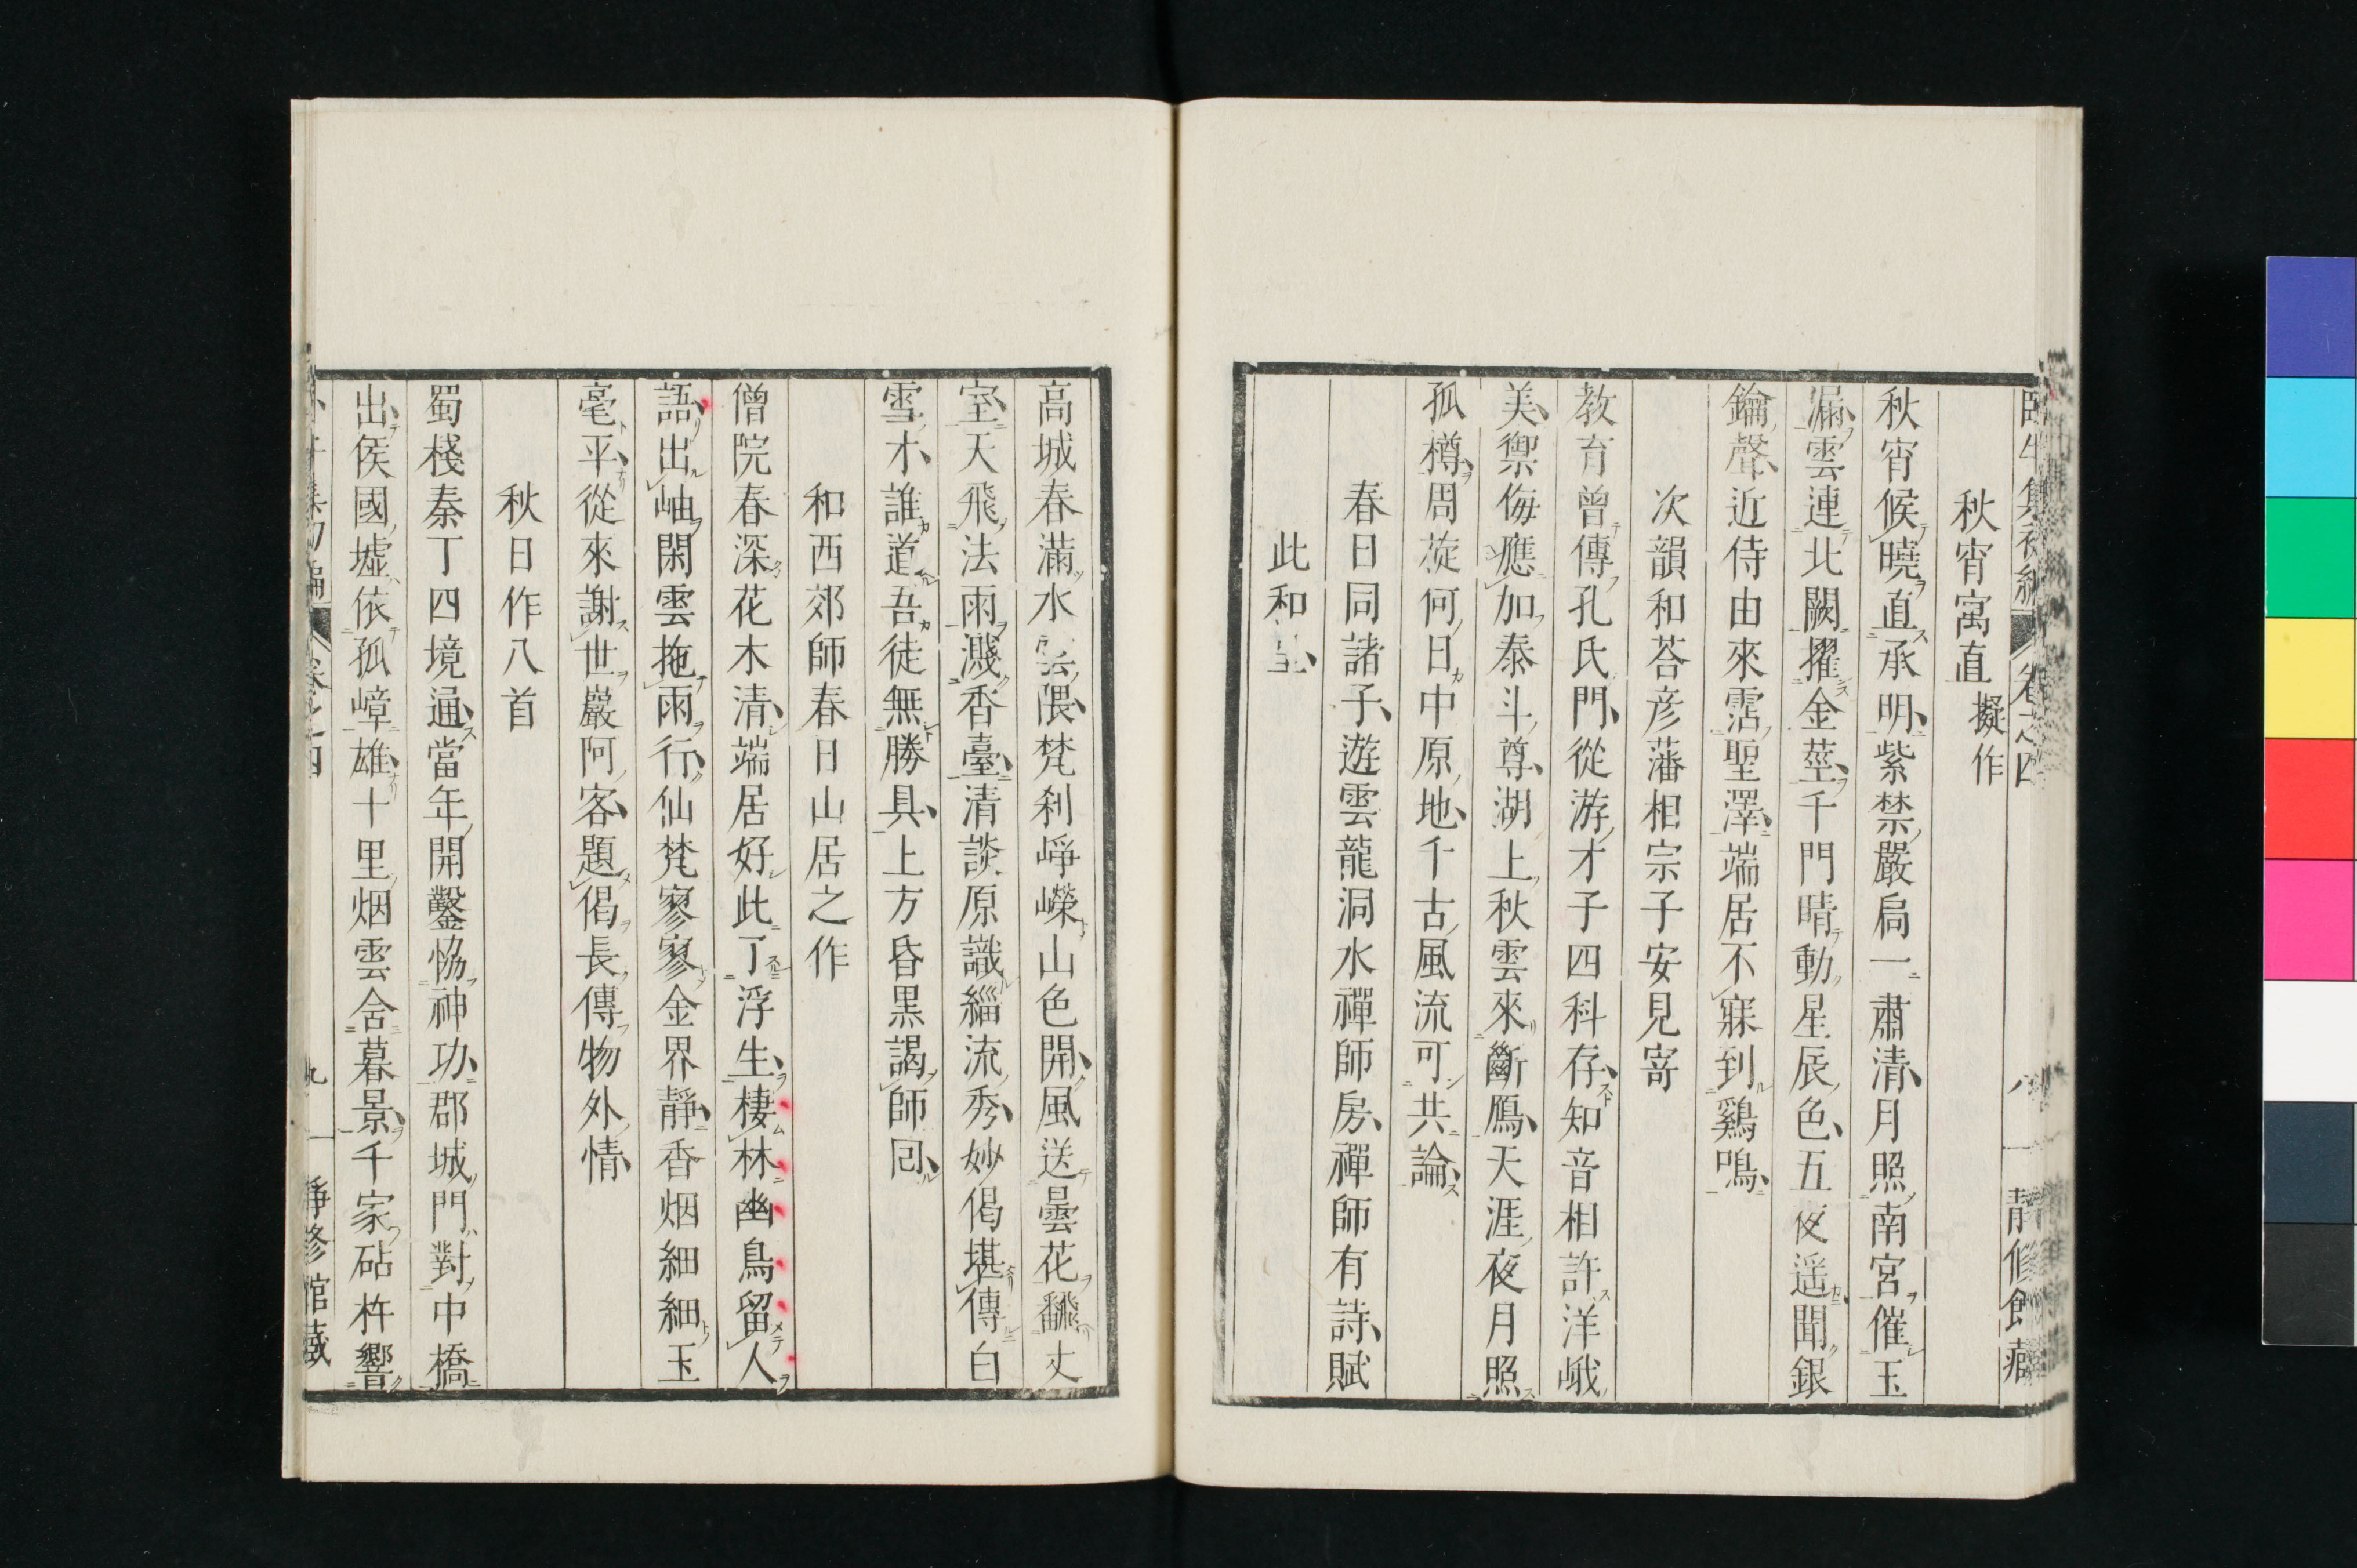 秋宵寓直擬作
秋宵候曉直承明紫禁嚴扃一肅清月照南宮催玉
漏雲連北闕擢金莖千門晴動星辰色五夜遥聞銀
鑰聲近侍由來霑聖澤端居不寐到鷄鳴
次韻和荅彦藩相宗子安見寄
教育曾傳孔氏門從游才子四科存知音相許洋峨
美禦侮應加泰斗尊湖上秋雲來斷鴈天涯夜月照
孤樽周旋何日中原地千古風流可共論
春日同諸子遊雲龍洞水禪師房禪師有詩賦
此和呈
高城春滿水雲隈梵刹崢嶸山色開風送曇花飜丈
室天飛法雨濺香臺清談原識緇流秀妙偈堪傳白
雪才誰道吾徒無勝具上方昏黒謁師回
和西郊師春日山居之作
僧院春深花木清端居好此了浮生棲林幽鳥留人
語出岫閑雲拖雨行仙梵寥寥金界靜香烟細細玉
毫平從來謝世巖阿客題偈長傳物外情
秋日作八首
蜀棧秦丁四境通當年開鑿恊神功郡城門對中橋
出侯國墟依孤嶂雄十里烟雲含暮景千家砧杵響
卷之四
九
靜修館藏